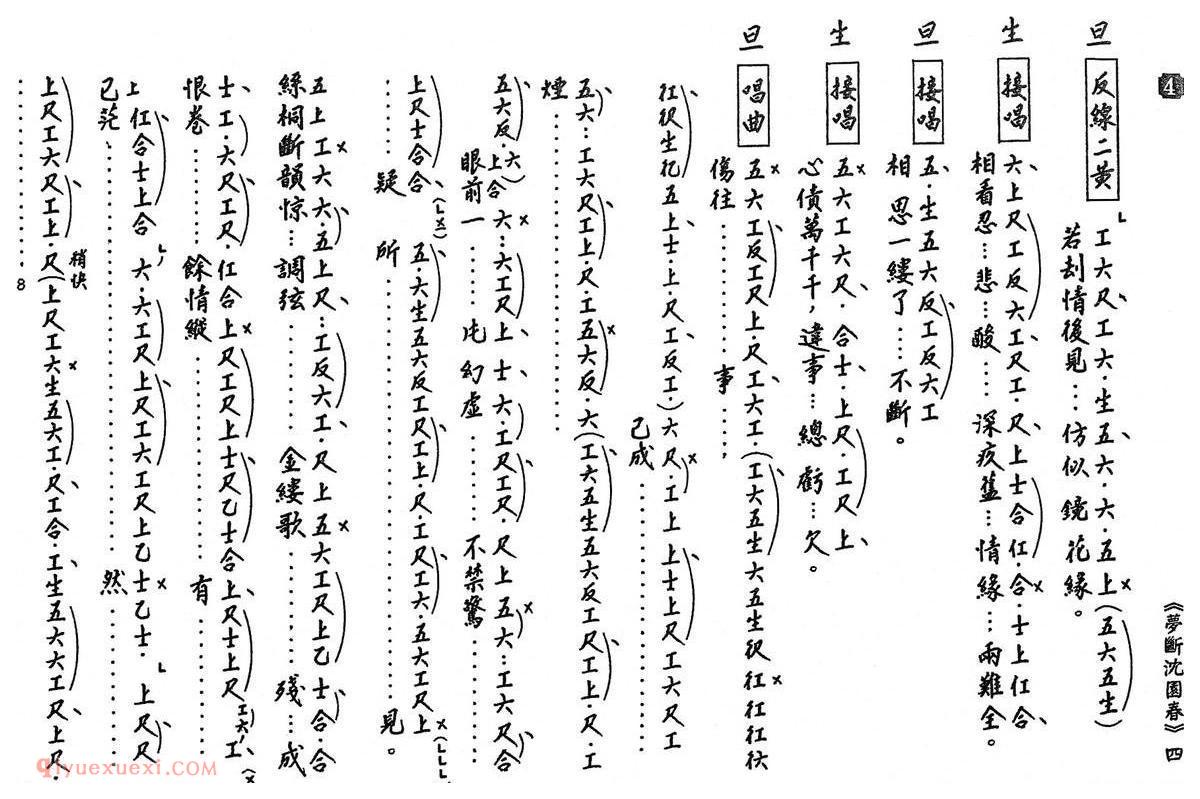 4
《夢斷沈園春》四
旦 反線二黃
工六尺工六·生五六·六五上(五六五生)
若刦情後見…仿似鏡花緣。
生 接唱
六上尺工反六工尺工·尺上士合仜·合·士上仜合
相看忍…悲…酸……深疚舊…情緣…兩難全。
旦 接唱
五·生五六反工反六工
相思一縷了……不斷。
生 接唱
五六工六尺·合士·上尺·工尺上
心債萬千千，違事…總虧…欠。
旦 唱曲
五六工反工尺上·尺工六工·(工六五生六五生
傷往……事……，
五上士·上尺工反工·)六尺·工上 上士上尺工六尺工
已成
五六…工六尺工上·尺·工五六反·六(工六五生五六反工尺工上·尺·工
煙
五六反·六…六工尺上 士·六·工尺工尺·尺上五六…工六尺合
眼前一……屯幻虛……不禁驚
上尺士合合 五·六生五六反工尺工上·尺·工尺工六·五六工尺上
疑……所……見。
五上工六六·五上尺…工反六工·尺上五六工尺上乙士合合
絲桐斷韻惊…調弦……金縷歌……殘…成
士工·六尺工尺·仜合上尺工尺上士尺乙士合上尺士上尺工六工
恨卷……餘情縱……有
上仜合士上合 六·六工尺上尺工六工尺上乙士乙士·上尺尺
已茫……然
上尺工六尺工上·尺(上尺工六生五六工·尺工合·工生五六六工尺上尺·
稍快
8
qiyuexuexi.COM